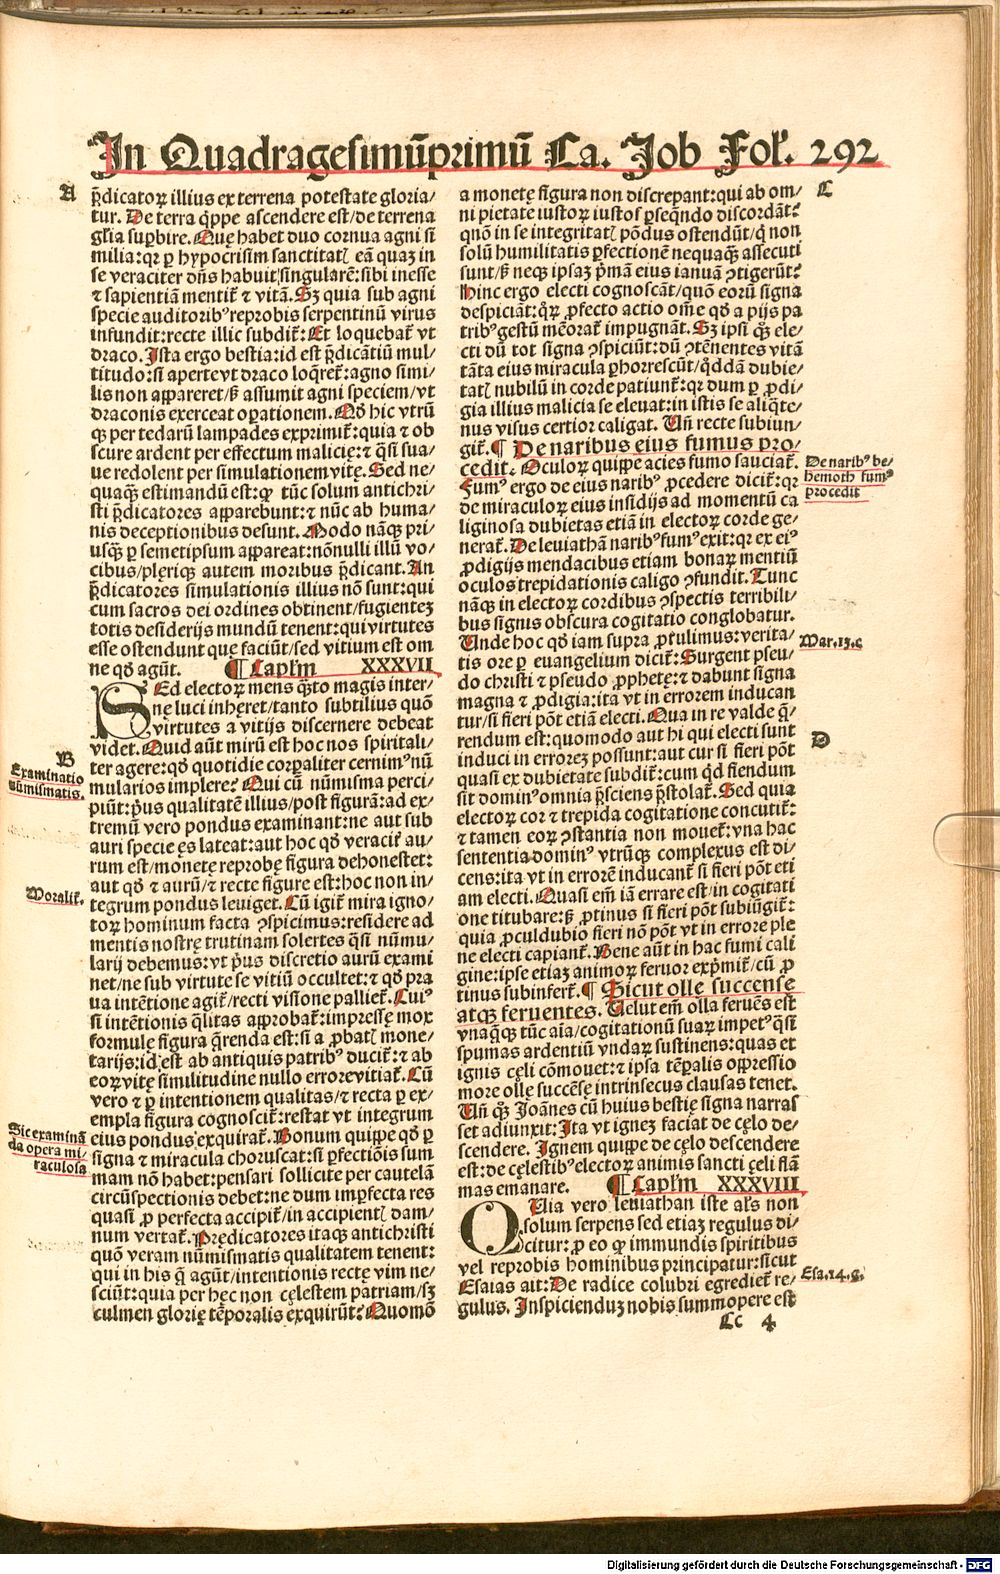 In Quadragesimūprimū Ca. Job Fol. 292
A
p̄dicatoꝝ illius ex terrena potestate gloria/
tur. De terra q̄ppe ascendere est/de terrena
gl̄ia suꝑbire. Quę habet duo cornua agni si
milia: qꝛ ꝑ hypocrisim sanctitatꝭ eā quaꝫ in
se veraciter dn̄s habuit/singularē: sibi inesse
⁊ sapientiā mentit̄ ⁊ vitā. Sꝫ quia sub agni
specie auditorib⁹ reprobis serpentinū virus
infundit: recte illic subdit̄: Et loquebat̄ vt
draco. Ista ergo bestia: id est p̄dicātiū mul/
titudo: si aperte vt draco loq̄ret̄: agno simi/
lis non appareret/ß assumit agni speciem/vt
draconis exerceat oꝑationem. Qđ hic vtrū
qꝫ per tedarū lampades exprimit̄: quia ⁊ ob
scure ardent per effectum malicię: ⁊ q̄si sua/
ue redolent per simulationem vitę. Sed ne/
quaqꝫ estimandū est: ꝙ tūc solum antichri/
sti p̄dicatores apparebunt: ⁊ nūc ab huma/
nis deceptionibus desunt. Modo nāqꝫ pri/
usqꝫ ꝑ semetipsum appareat: nōnulli illū vo/
cibus/plęriqꝫ autem moribus p̄dicant. An
p̄dicatores simulationis illius nō sunt: qui
cum sacros dei ordines obtinent/fugienteꝫ
totis desiderijs mundū tenent: qui virtutes
esse ostendunt quę faciūt/sed vitium est om
ne qđ agūt. ¶ Caplm XXXVII
SEd electoꝝ mens q̄to magis inter/
nę luci inhęret/tanto subtilius quō
virtutes a vitijs discernere debeat
videt. Quid aūt mirū est hoc nos spiritali/
ter agere: qđ quotidie corꝑaliter cernim⁹ nū
mularios implere? Qui cū nūmisma perci/
piūt: pꝰus qualitatē illius/post figurā: ad ex/
tremū vero pondus examinant: ne aut sub
auri specie ęs lateat: aut hoc qđ veracit̄ au/
rum est/monetę reprobę figura dehonestet:
aut qđ ⁊ aurū/⁊ recte figure est: hoc non in/
tegrum pondus leuiget. Cū igit̄ mira igno/
toꝝ hominum facta ꝯspicimus: residere ad
mentis nostrę trutinam solertes q̄si nūmu/
larij debemus: vt pꝰus discretio aurū exami
net/ne sub virtute se vitiū occultet: ⁊ qđ pra
ua intētione agit̄/recti visione palliet̄. Cui⁹
si intētionis q̄litas approbat̄: impressę mox
formulę figura q̄renda est: si a ꝓbatꝭ mone/
tarijs: id est ab antiquis patrib⁹ ducit̄: ⁊ ab
eoꝝ vitę similitudine nullo errore vitiat̄. Cū
vero ⁊ ꝑ intentionem qualitas/⁊ recta ꝑ ex/
empla figura cognoscit̄: restat vt integrum
eius pondus exquirat̄. Bonum quippe qđ ꝑ
signa ⁊ miracula choruscat: si ꝑfectiōis sum
mam nō habet: pensari sollicite per cautelā
circūspectionis debet: ne dum imꝑfecta res
quasi ꝓ perfecta accipit̄/in accipientꝭ dam/
num vertat̄. Prędicatores itaqꝫ antichristi
quō veram nūmismatis qualitatem tenent:
qui in his q̄ agūt/intentionis rectę vim ne/
sciūt: quia per hęc non cęlestem patriam/sꝫ
culmen glorię tēporalis exquirūt? Quomō
B
Examinatio
nūmismatis.
Moralit̄.
Sic examinā
da opera mi/
raculosa
a monetę figura non discrepant: qui ab om/
ni pietate iustoꝝ iustos ꝑseq̄ndo discordāt?
quō in se integritatꝭ pōdus ostendūt/q̄ non
solū humilitatis ꝑfectionē nequaqꝫ assecuti
sunt/ß neqꝫ ipsaꝫ p̄mā eius ianuā ꝯtigerūt?
Hinc ergo electi cognoscāt/quō eorū signa
despiciāt: q̄ꝝ ꝓfecto actio om̄e qđ a pijs pa
trib⁹ gestū mēorat̄ impugnāt. Sꝫ ipsi qꝫ ele/
cti dū tot signa ꝯspiciūt: dū ꝯtēnentes vitā
tāta eius miracula ꝑhorrescūt/q̄ddā dubie/
tatꝭ nubilū in corde patiunt̄: qꝛ dum ꝑ ꝓdi/
gia illius malicia se eleuat: in istis se aliq̄te/
nus visus certior caligat. Vn̄ recte subiun/
git̄. ¶ De naribus eius fumus pro/
cedit. Oculoꝝ quippe acies fumo sauciat̄.
Fum⁹ ergo de eius narib⁹ ꝓcedere dicit̄: qꝛ
de miraculoꝝ eius insidijs ad momentū ca
liginosa dubietas etiā in electoꝝ corde ge/
nerat̄. De leuiathā narib⁹ fum⁹ exit: qꝛ ex ei⁹
ꝓdigijs mendacibus etiam bonaꝝ mentiū
oculos trepidationis caligo ꝯfundit. Tunc
nāqꝫ in electoꝝ cordibus ꝯspectis terribili/
bus signis obscura cogitatio conglobatur.
Unde hoc qđ iam supra ꝓtulimus: verita/
tis ore ꝑ euangelium dicit̄: Surgent pseu/
do christi ⁊ pseudo ꝓphetę: ⁊ dabunt signa
magna ⁊ ꝓdigia: ita vt in errorem inducan
tur/si fieri pōt etiā electi. Qua in re valde q̄/
rendum est: quomodo aut hi qui electi sunt
induci in erroreꝫ possunt: aut cur si fieri pōt
quasi ex dubietate subdit̄: cum qđ fiendum
sit domin⁹ omnia p̄sciens p̄stolat̄. Sed quia
electoꝝ cor ⁊ trepida cogitatione concutit̄:
⁊ tamen eoꝝ ꝯstantia non mouet̄: vna hac
sententia domin⁹ vtrūqꝫ complexus est di/
cens: ita vt in errorē inducant̄ si fieri pōt eti
am electi. Quasi em̄ iā errare est/in cogitati
one titubare: ß ꝓtinus si fieri pōt subiūgit̄:
quia ꝓculdubio fieri nō pōt vt in errore ple
ne electi capiant̄. Bene aūt in hac fumi cali
gine: ipse etiaꝫ animoꝝ feruor exp̄mit̄/cū ꝓ
tinus subinfert̄. ¶ Sicut ollę succensę
atqꝫ feruentes. Velut em̄ olla feruēs est
vnaq̄qꝫ tūc aīa/cogitationū suaꝝ impet⁹ q̄si
spumas ardentiū vndaꝝ sustinens: quas et
ignis cęli cōmouet: ⁊ ipsa tēꝑalis oppressio
more ollę succēsę intrinsecus clausas tenet.
Vn̄ qꝫ Joānes cū huius bestię signa narras
set adiunxit: Ita vt igneꝫ faciat de cęlo de/
scendere. Ignem quippe de cęlo descendere
est: de cęlestib⁹ electoꝝ animis sancti ęeli flā
mas emanare. ¶ Caplm XXXVIII
QUia vero leuiathan iste al̄s non
solum serpens sed etiaꝫ regulus di/
citur: ꝓ eo ꝙ immundis spiritibus
vel reprobis hominibus principatur: sicut
Esaias ait: De radice colubri egrediet̄ re/
gulus. Inspicienduꝫ nobis summopere est
C
De narib⁹ be/
hemoth fum⁹
procedit
Mar.13.c
D
Esa.14.g.
Cc 4
Digitalisierung gefördert durch die Deutsche Forschungsgemeinschaft - DFG